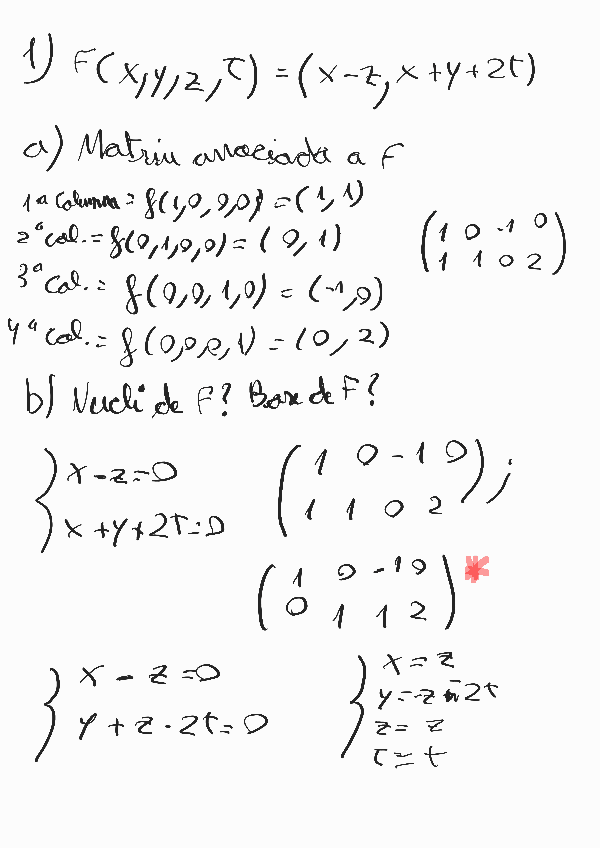 1) F(x,y,z,t) = (x-z, x+y+2t)
a) Matriu associada a F
1ª columna = f(1,0,0,0) = (1,1)
2ª col. = f(0,1,0,0) = (0,1)
3ª col. = f(0,0,1,0) = (-1,0)
4ª col. = f(0,0,0,1) = (0,2)
(1 0 -1 0
1 1 0 2)
b) Nucli de F? Base de F?
{x-z=0
x+y+2t=0
(1 0 -1 0
1 1 0 2);
(1 0 -1 0
0 1 1 2)*
{x-z=0
y+z·2t=0
{x=z
y=-z-2t
z=z
t=t